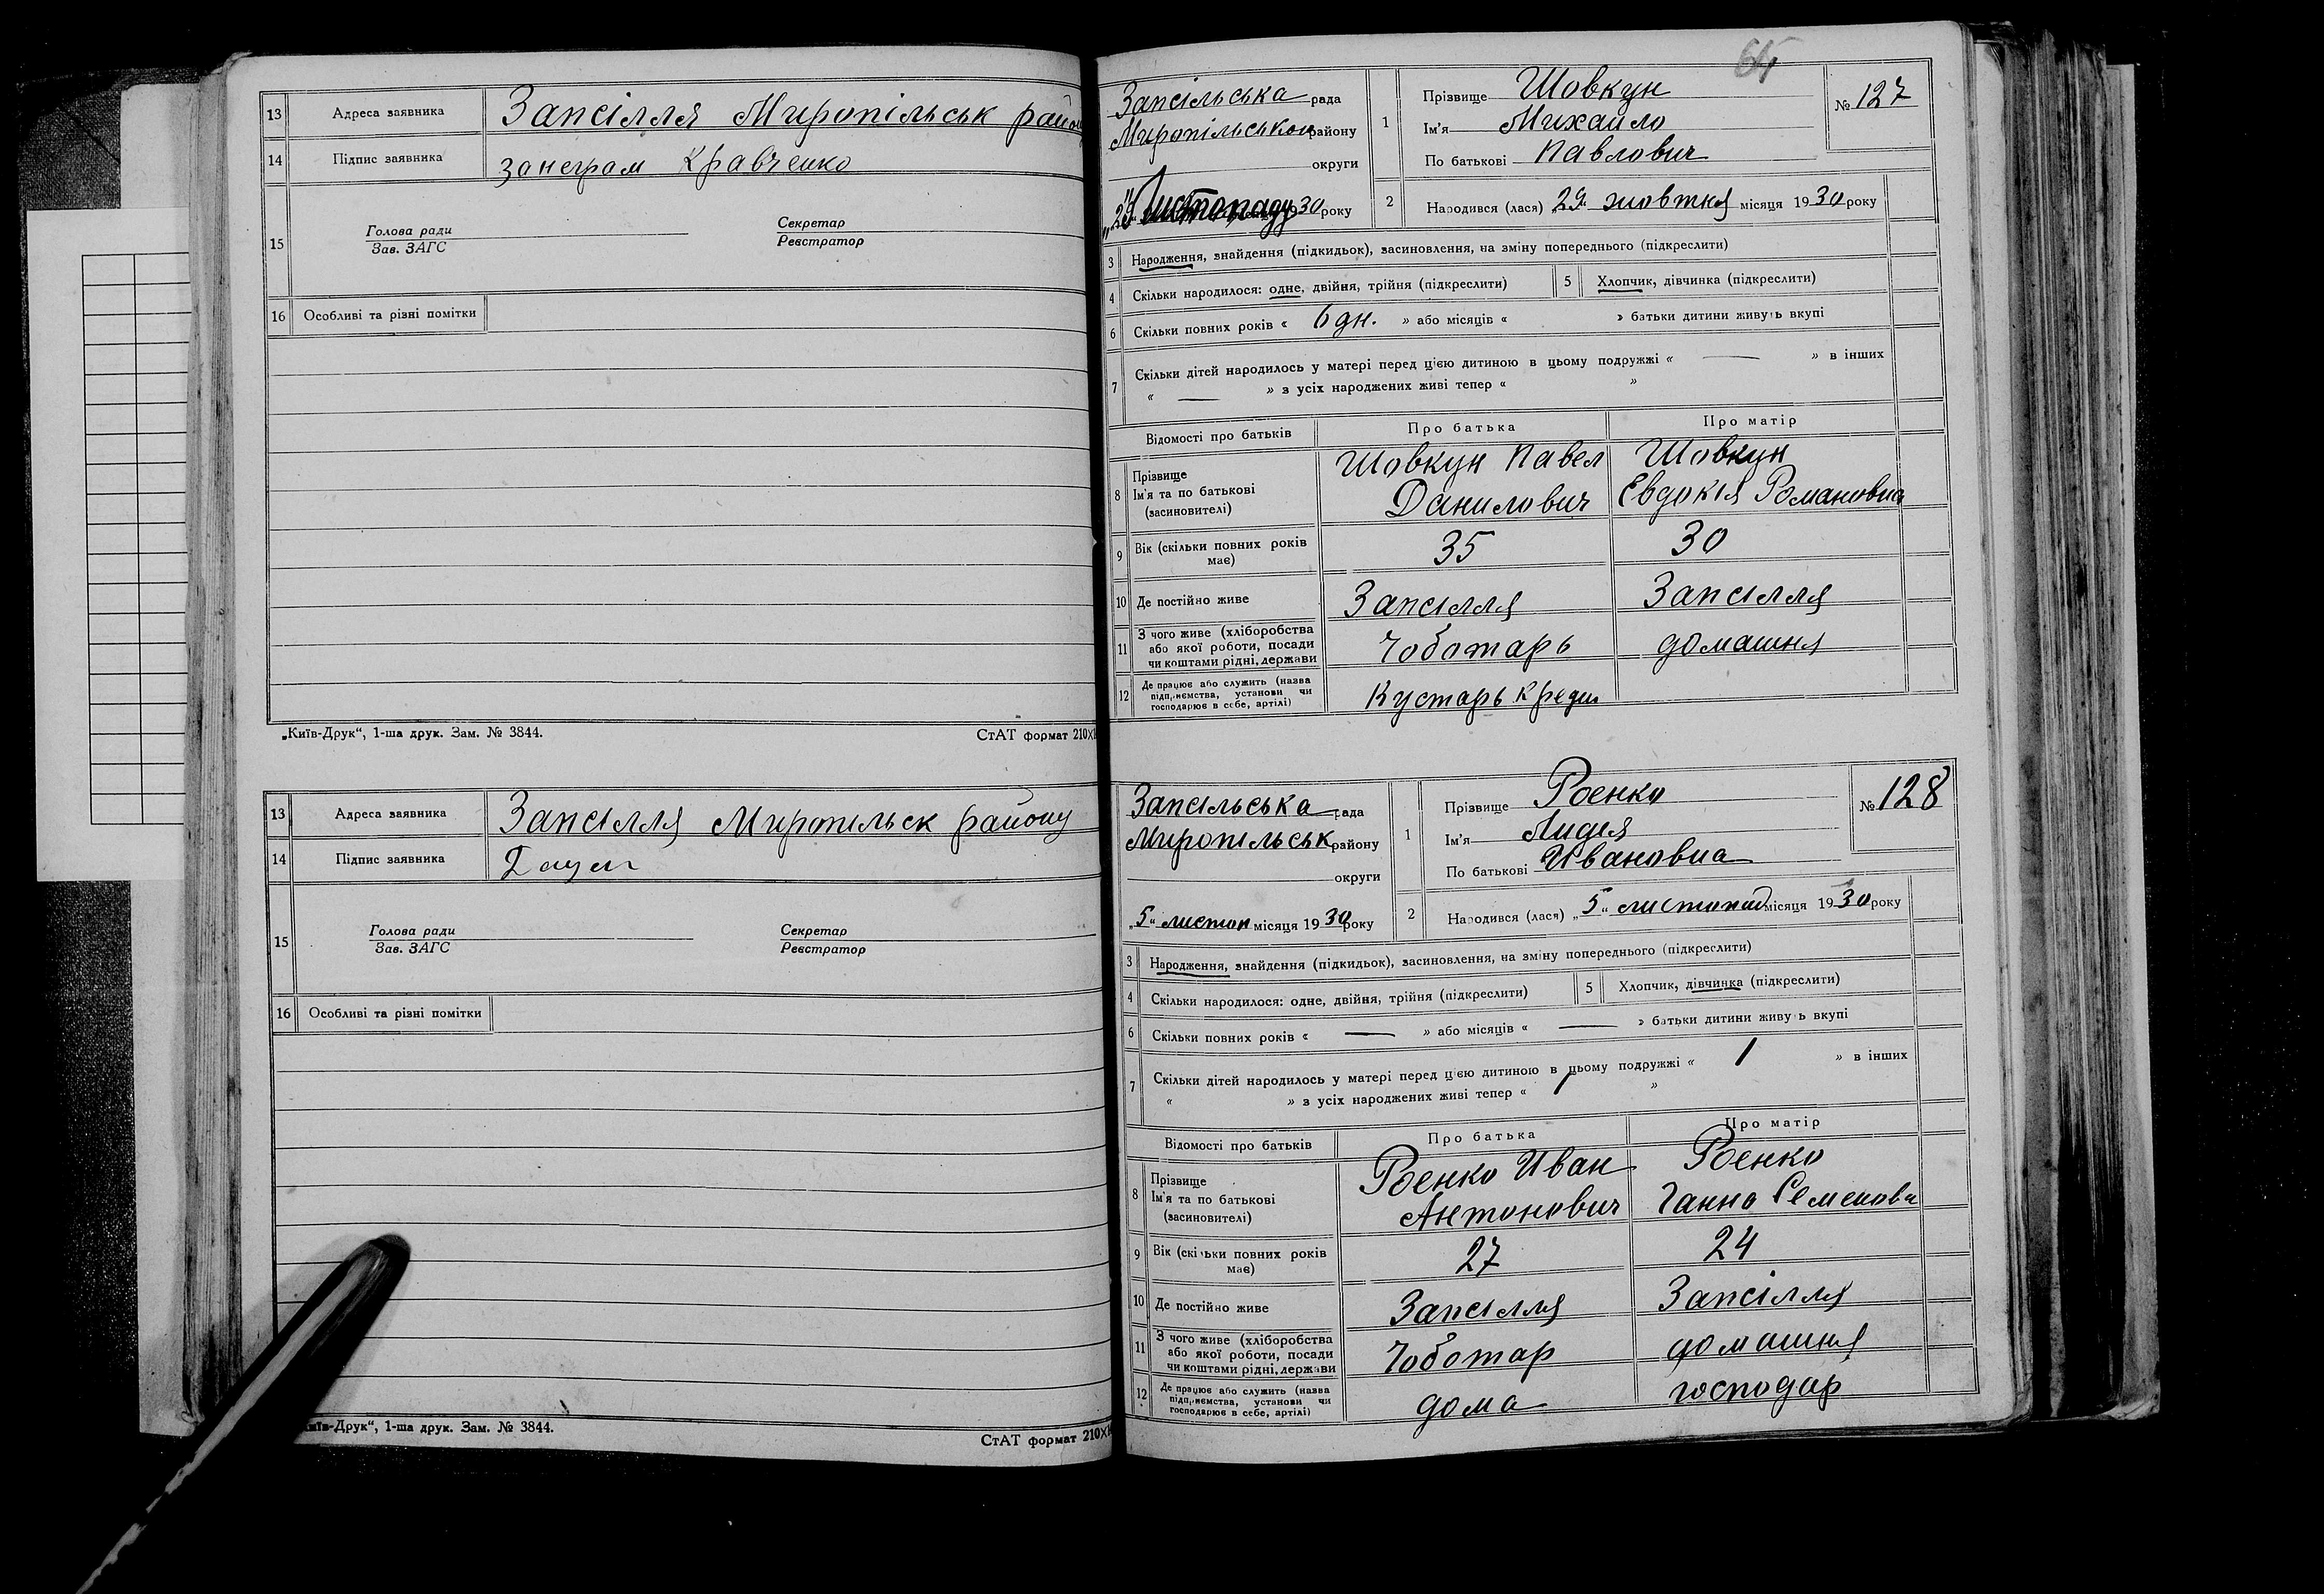 13 Адреса заявника Запсілля Миропільськ району
14 Підпис заявника за неграм Кравченко
15 Голова ради Секретар
Зав. ЗАГС Реєстратор
16 Особливі та різні помітки
„Київ-Друк“, 1-ша друк. Зам. № 3844. СтАТ формат 210×
13 Адреса заявника Запсілля Миропільск району
14 Підпис заявника
15 Голова ради Секретар
Зав. ЗАГС Реєстратор
16 Особливі та різні помітки
Київ-Друк“, 1-ша друк. Зам. № 3844. СтАТ формат 210×
Запсільська рада
Миропільської району
округи
Листопаду 1930 року
1 Прізвище Шовкун
Ім'я Михайло
По батькові Павлович
№ 127
2 Народився (лася) „29“ жовтня місяця 1930 року
3 Народження, знайдення (підкидьок), засиновлення, на зміну попереднього (підкреслити)
4 Скільки народилося: одне, двійня, трійня (підкреслити) 5 Хлопчик, дівчинка (підкреслити)
6 Скільки повних років « 6 дн. » або місяців « » батьки дитини живуть вкупі
7 Скільки дітей народилось у матері перед цією дитиною в цьому подружжі « — » в інших
« — » з усіх народжених живі тепер « »
Відомості про батьків Про батька Про матір
8 Прізвище Ім'я та по батькові (засиновителі) Шовкун Павел Данилович Шовкун Євдокія Романовна
9 Вік (скільки повних років має) 35 30
10 Де постійно живе Запсілля Запсілля
11 З чого живе (хліборобства або якої роботи, посади чи коштами рідні, держави Чоботарь домашня
12 Де працює або служить (назва підприємства, установи чи господарює в себе, артілі) Кустарь кредит
Запсільська рада
Миропільськ району
округи
„5“ листоп місяця 1930 року
1 Прізвище Роенко
Ім'я Лидія
По батькові Ивановна
№ 128
2 Народився (лася) „5“ листопад місяця 1930 року
3 Народження, знайдення (підкидьок), засиновлення, на зміну попереднього (підкреслити)
4 Скільки народилося: одне, двійня, трійня (підкреслити) 5 Хлопчик, дівчинка (підкреслити)
6 Скільки повних років « — » або місяців « — » батьки дитини живуть вкупі
7 Скільки дітей народилось у матері перед цією дитиною в цьому подружжі « 1 » в інших
« » з усіх народжених живі тепер « 1 »
Відомості про батьків Про батька Про матір
8 Прізвище Ім'я та по батькові (засиновителі) Роенко Иван Антонович Роенко Ганна Семеновн
9 Вік (скільки повних років має) 27 24
10 Де постійно живе Запсілля Запсілля
11 З чого живе (хліборобства або якої роботи, посади чи коштами рідні, держави Чоботар домашня
12 Де працює або служить (назва підприємства, установи чи господарює в себе, артілі) дома господар